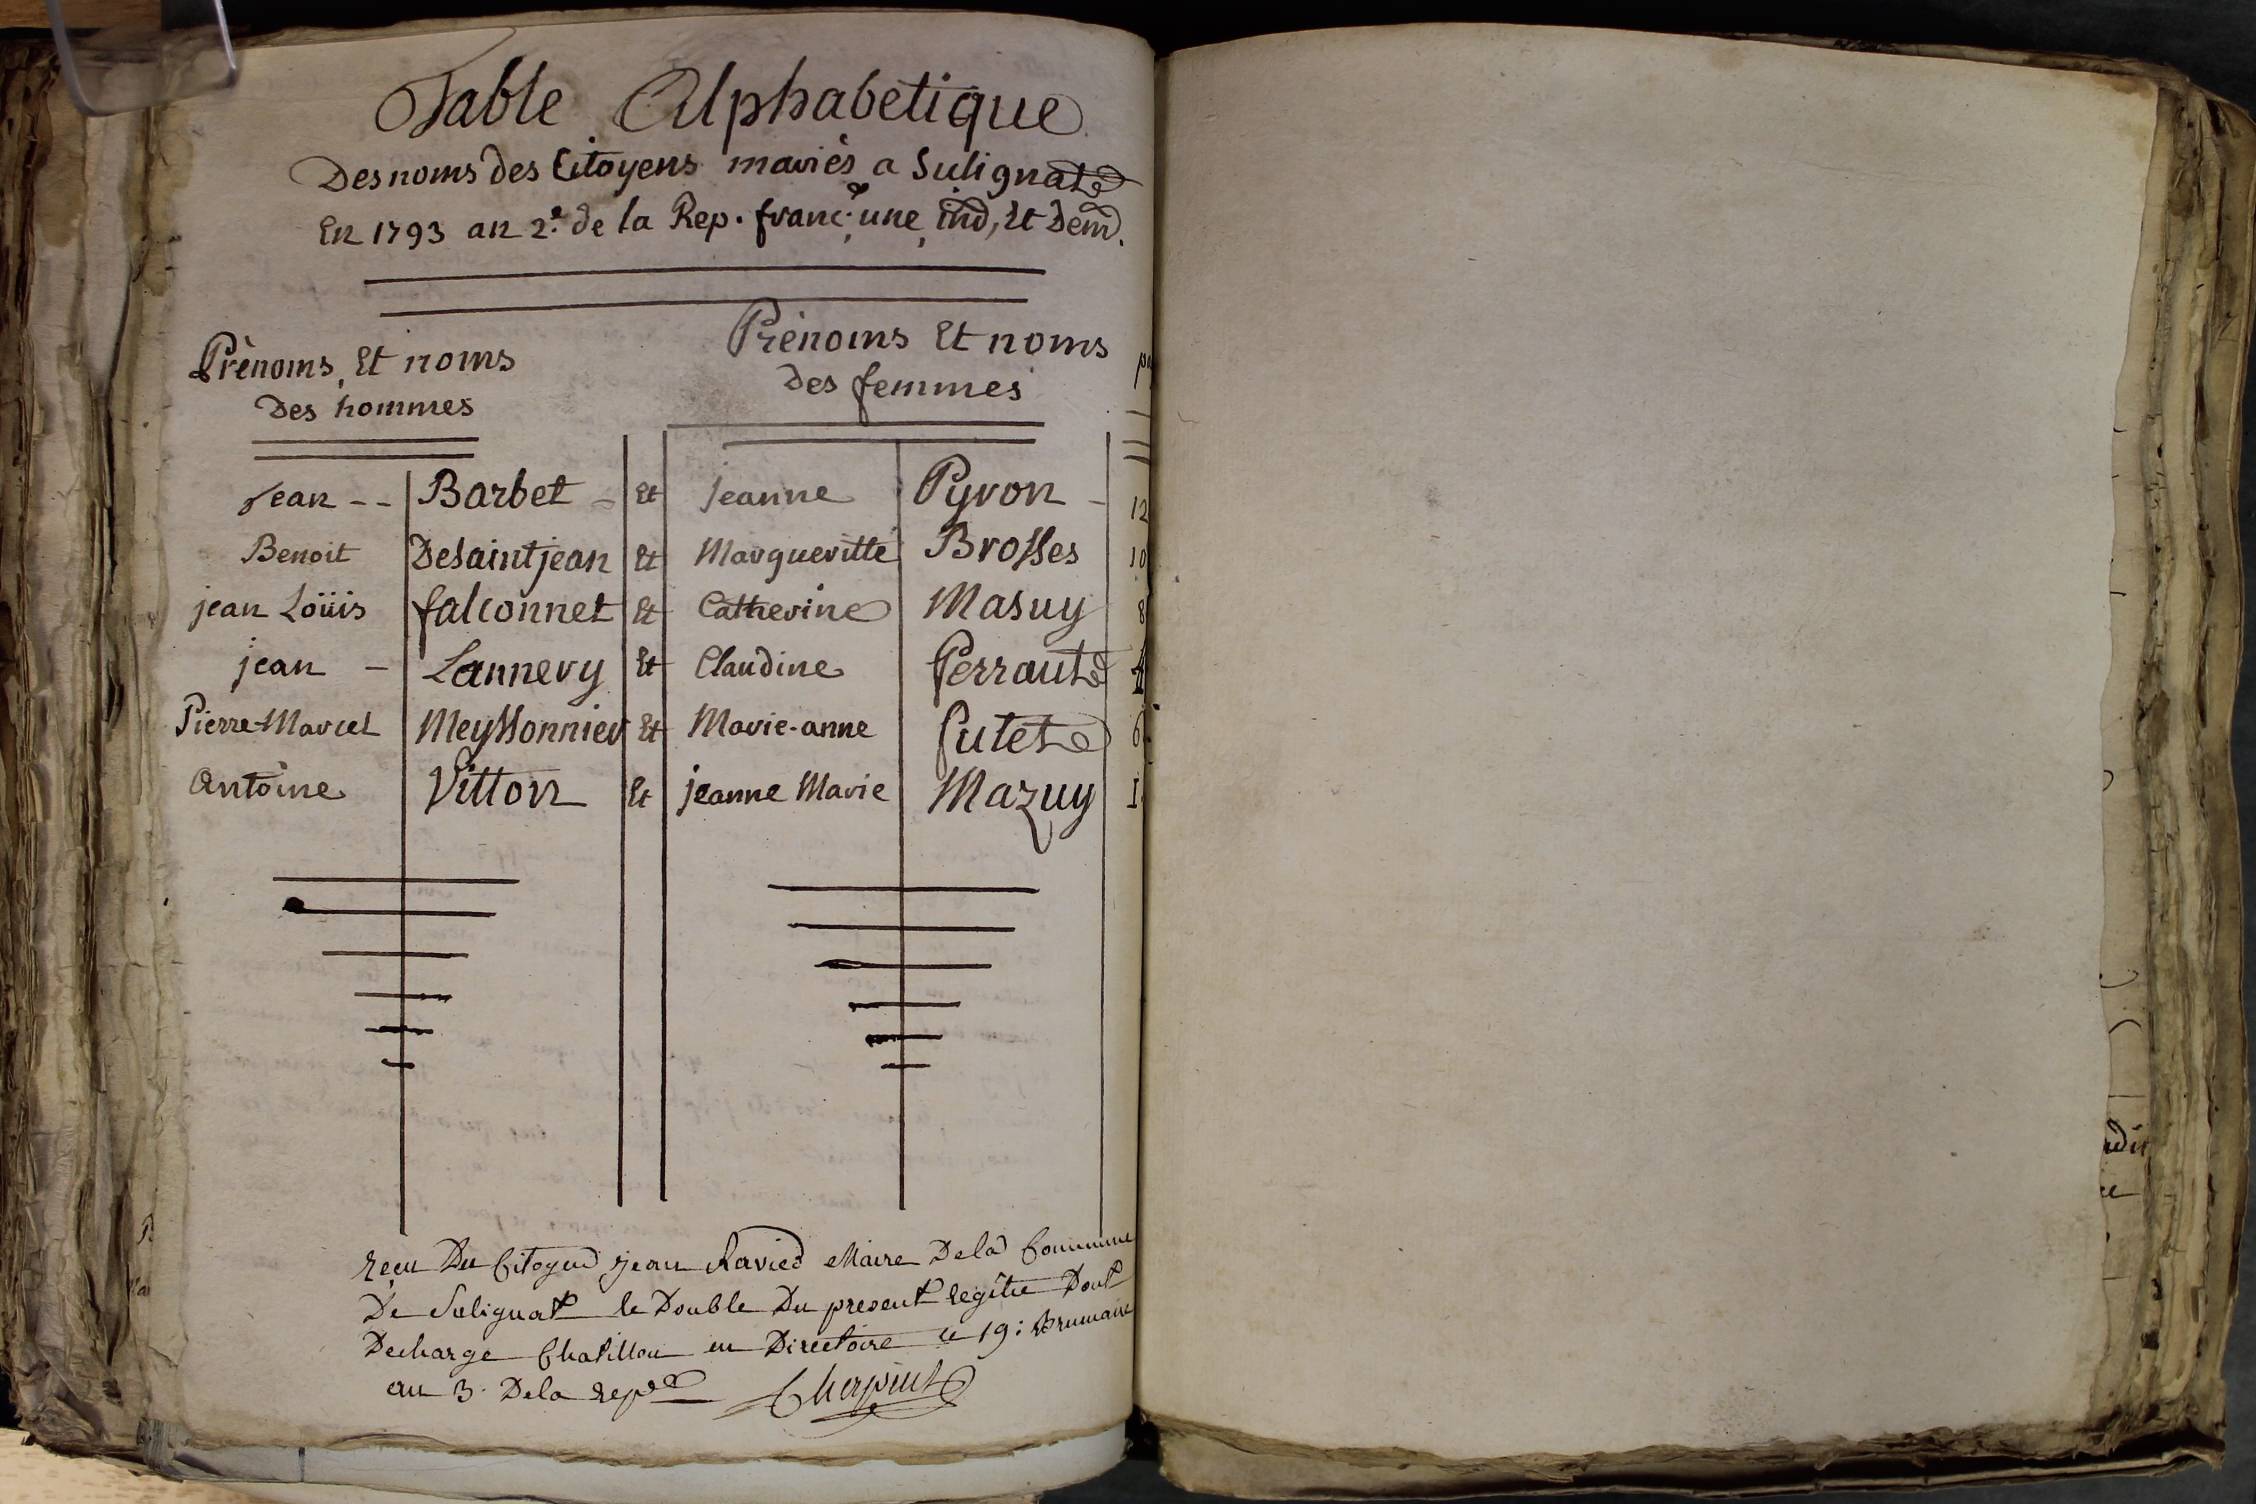 Table Alphabetique
Des noms des Citoyens mariès a Sulignat
En 1793 an 2.e de la Rep. franc.e, une, ind, Et Dem.
Prènoms, Et noms
Des hommes
Prènoms Et noms
des femmes
Jean -- Barbet - Et jeanne Pyron - 12
Benoit Desaintjean Et Margueritte Brosses 10
jean Loüis falconnet Et Catherine Masuy 8
jean - Lannery Et Claudine Perraut 4
Pierre-Marcel Meyssonnier Et Marie-anne Putet 6
Antoine Vitton Et jeanne Marie Mazuy I
reçu Du Citoyen jean Ravier Maire De la Commune
De Sulignat le Double Du present regitre Dont
Decharge Chatillon en Directoire ce 19: Brumaire
an 3. De la rep.